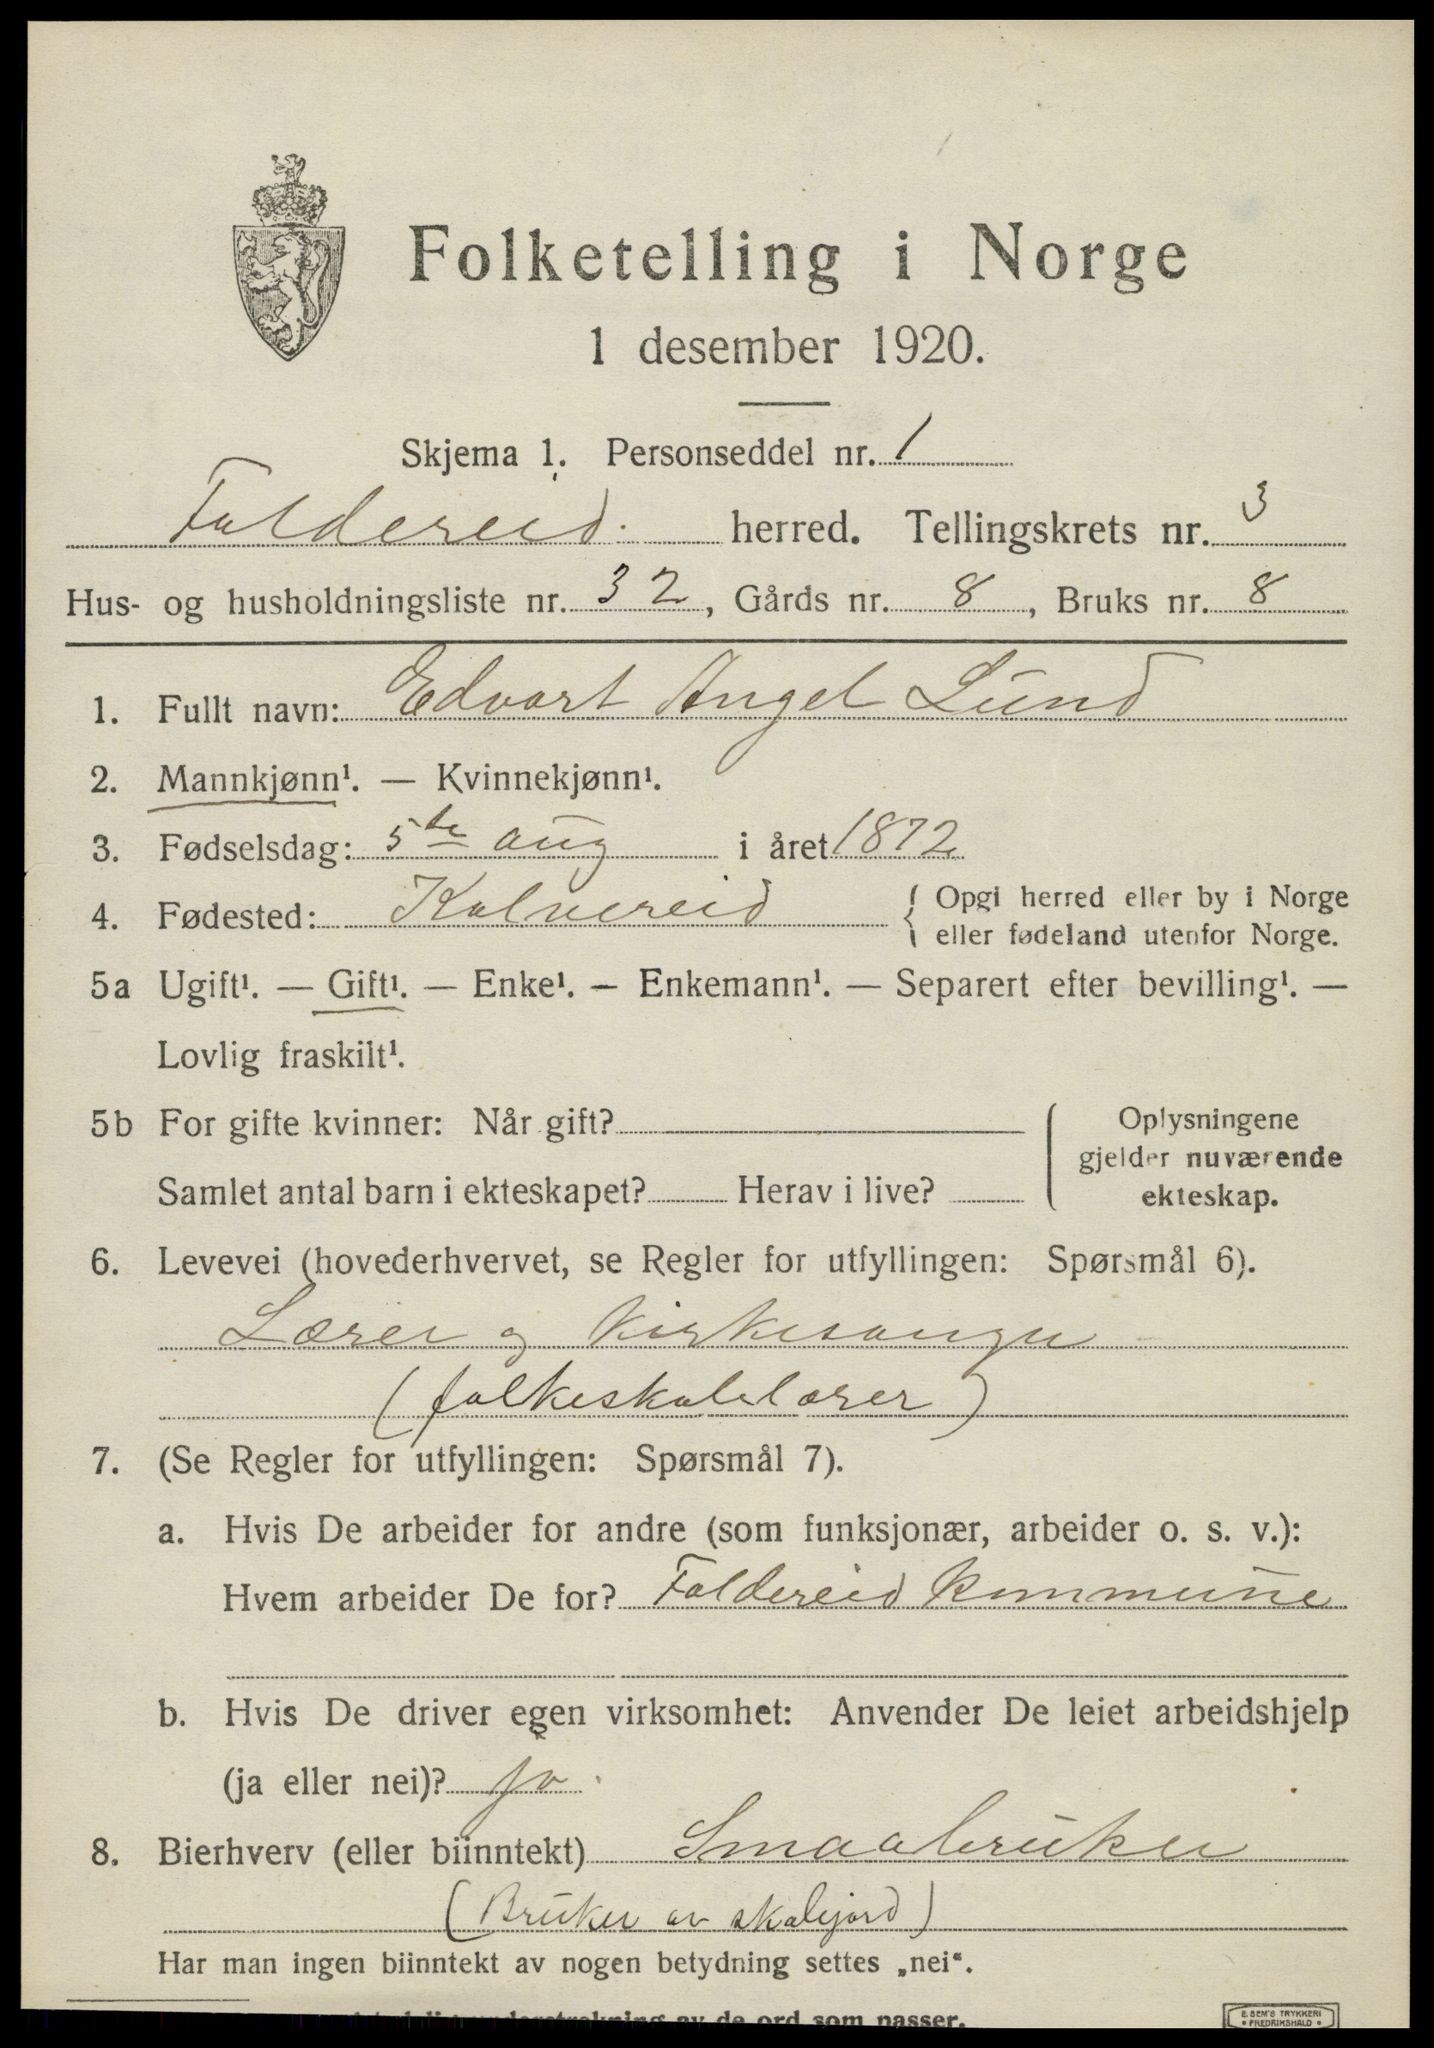 Folketelling i Norge
1 desember 1920.
Skjema 1. Personseddel nr. 1
Foldereid herred. Tellingskrets nr. 3
Hus- og husholdningsliste nr. 32, Gårds nr. 8, Bruks nr. 8
1. Fullt navn: Edvart Angel Lund
2. Mannkjønn¹. — Kvinnekjønn¹.
3. Fødselsdag: 5te aug i året 1872
4. Fødested: Kolvereid { Opgi herred eller by i Norge
eller fødeland utenfor Norge.
5a Ugift¹. — Gift¹. — Enke¹. — Enkemann¹. — Separert efter bevilling¹. —
Lovlig fraskilt¹.
5b For gifte kvinner: Når gift?
Samlet antal barn i ekteskapet? Herav i live?
Oplysningene
gjelder nuværende
ekteskap.
6. Levevei (hovederhvervet, se Regler for utfyllingen: Spørsmål 6).
Lærer og kirkesanger
(folkeskolelærer)
7. (Se Regler for utfyllingen: Spørsmål 7).
a. Hvis De arbeider for andre (som funksjonær, arbeider o. s. v.):
Hvem arbeider De for? Foldereid kommune
b. Hvis De driver egen virksomhet: Anvender De leiet arbeidshjelp
(ja eller nei)? ja
8. Bierhverv (eller biinntekt) Smaabruker
(Bruker av skolejord)
Har man ingen biinntekt av nogen betydning settes „nei“.
understrekning av de ord som passer.
E. SEM'S TRYKKERI
• FREDRIKSHALD •